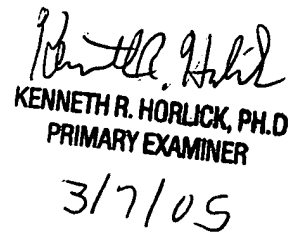 Kenneth R. Horlick
KENNETH R. HORLICK, PH.D
PRIMARY EXAMINER
3/7/05